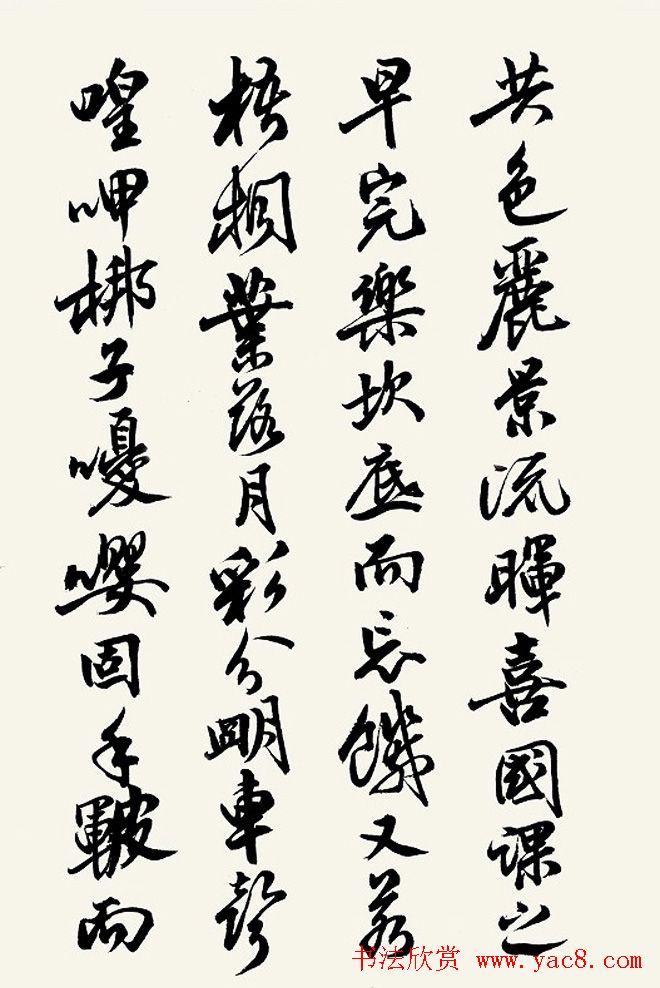 共色麗景流暉喜國課之
早完樂坎底而忘饑又若
梧桐葉落月彩分明車聲
喤呷梆子嚘嚶固手皸而
书法欣赏 www.yac8.com